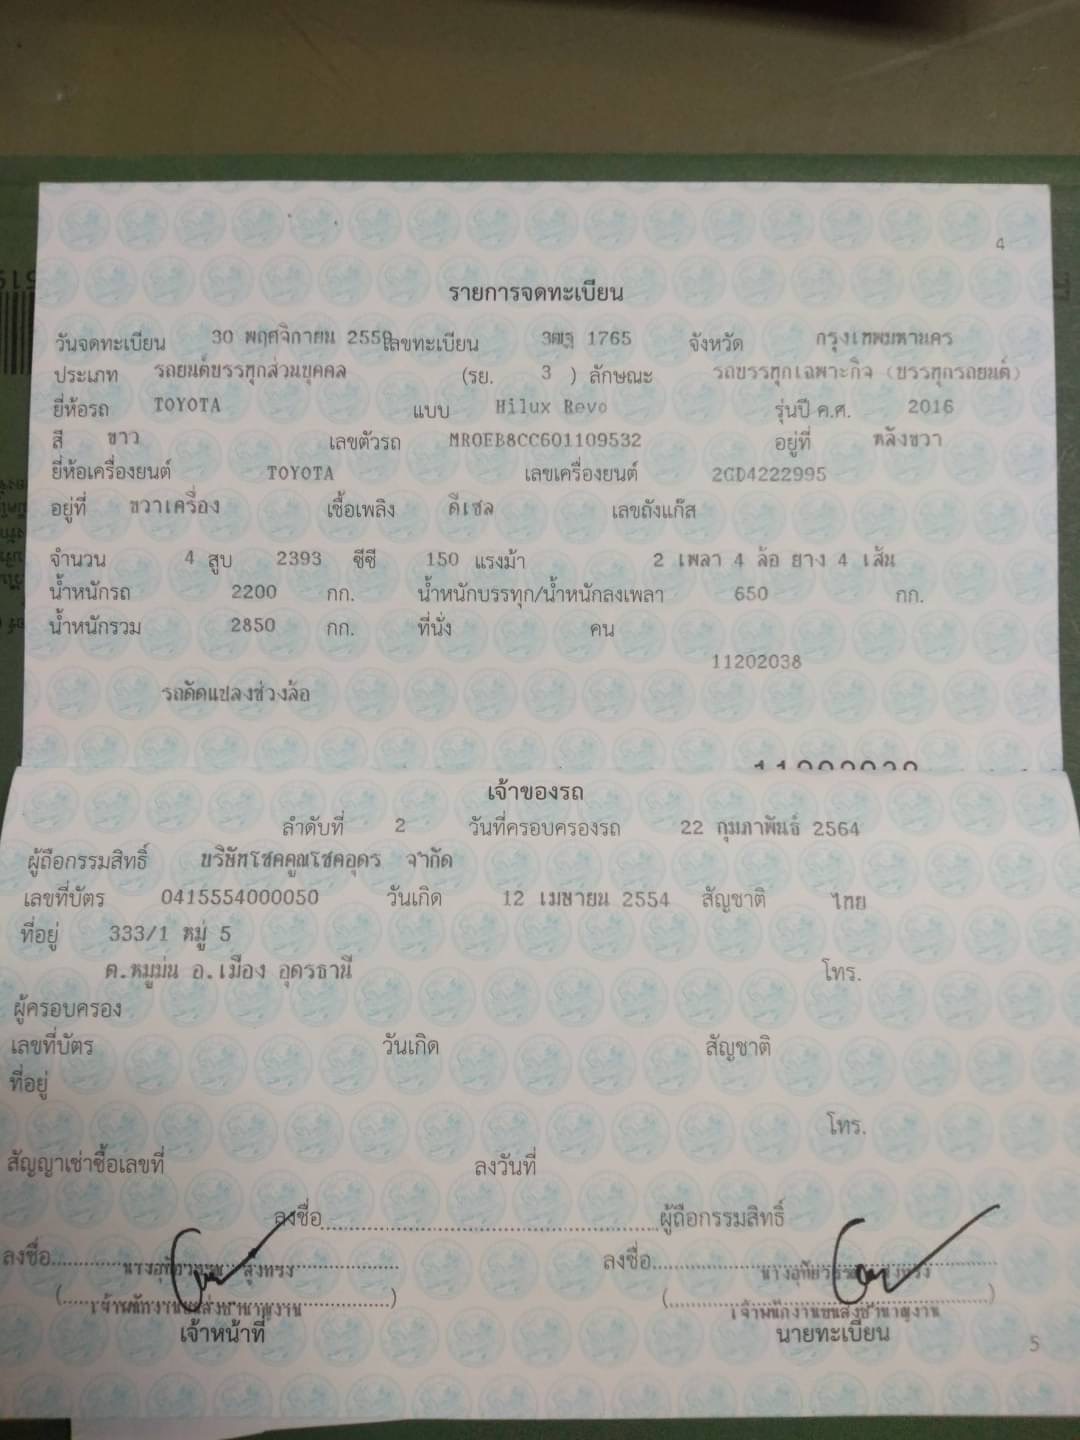 4
รายการจดทะเบียน
วันจดทะเบียน 30 พฤศจิกายน 2559 เลขทะเบียน 3ฒฐ 1765 จังหวัด กรุงเทพมหานคร
ประเภท รถยนต์บรรทุกส่วนบุคคล (รย. 3 ) ลักษณะ รถบรรทุกเฉพาะกิจ (บรรทุกรถยนต์)
ยี่ห้อรถ TOYOTA แบบ Hilux Revo รุ่นปี ค.ศ. 2016
สี ขาว เลขตัวรถ MR0EB8CC601109532 อยู่ที่ หลังขวา
ยี่ห้อเครื่องยนต์ TOYOTA เลขเครื่องยนต์ 2GD4222995
อยู่ที่ ขวาเครื่อง เชื้อเพลิง ดีเซล เลขถังแก๊ส
จำนวน 4 สูบ 2393 ซีซี 150 แรงม้า 2 เพลา 4 ล้อ ยาง 4 เส้น
น้ำหนักรถ 2200 กก. น้ำหนักบรรทุก/น้ำหนักลงเพลา 650 กก.
น้ำหนักรวม 2850 กก. ที่นั่ง คน
11202038
รถดัดแปลงช่วงล้อ
เจ้าของรถ
ลำดับที่ 2 วันที่ครอบครองรถ 22 กุมภาพันธ์ 2564
ผู้ถือกรรมสิทธิ์ บริษัทโชคคูณโชคอุดร จำกัด
เลขที่บัตร 0415554000050 วันเกิด 12 เมษายน 2554 สัญชาติ ไทย
ที่อยู่ 333/1 หมู่ 5
ต.หมูม่น อ.เมือง อุดรธานี โทร.
ผู้ครอบครอง
เลขที่บัตร วันเกิด สัญชาติ
ที่อยู่
โทร.
สัญญาเช่าซื้อเลขที่ ลงวันที่
ลงชื่อ ผู้ถือกรรมสิทธิ์
ลงชื่อ ลงชื่อ
เจ้าพนักงานขนส่งชำนาญงาน เจ้าพนักงานขนส่งชำนาญงาน
เจ้าหน้าที่ นายทะเบียน
5